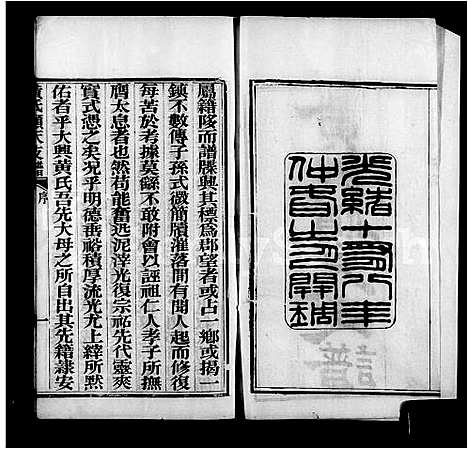 光緒十八年
仲春開鐫
屬籍隊而譜牒興其標為郡望者或占一鄉或揭一
鎮不數傳子孫式微簡牘灌落間有聞人起而修復
每苦於考據莫繇不敢附會以誣祖仁人孝子所撫
膺太息者也然苟能奮迅泥滓光復宗祐先代靈爽
實式憑之矣況乎明德垂裕積厚流光尤上縡所默
佑者乎大興黃氏吾先大母之所自出其先籍隸安
序 一